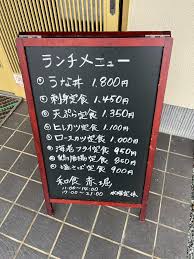 ランチメニュー
① うな丼 1.800円
② 刺身定食 1.450円
③ 天ぷら定食 1.350円
④ ヒレカツ定食 1.100円
⑤ ロースカツ定食 1.000円
⑥ 海老フライ定食 950円
⑦ 定食 900円
⑧ 塩そば定食 900円
和食 赤堀
11:00~14:00
17:00~21:00
水曜定休